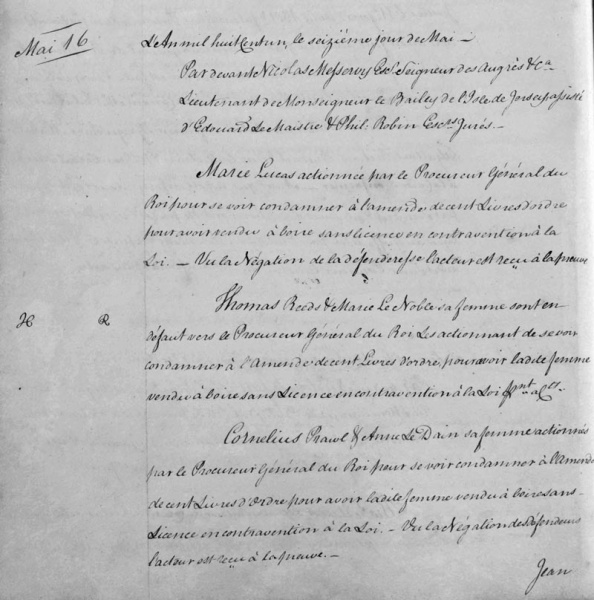 Mai 16
L'An mil huit Cent un, le seizième jour de Mai —
Pardevant Nicolas Messervy Escr. Seigneur des Augrès &ca
Lieutenant de Monseigneur le Bailly de l'Isle de Jersey assisté
d'Edouard Le Maistre & Phil. Robin Escrs Jurés. —
Marie Lucas actionnée par le Procureur Général du
Roi pour se voir condamner à l'amende de cent Livres d'ordre
pour avoir vendu à boire sans licence en contravention à la
Loi. — Vu la Négation de la défenderesse l'acteur est reçu à la preuve
Thomas Reeds & Marie Le Noble sa femme sont en
H R
défaut vers le Procureur Général du Roi Les actionnant de se voir
condamner à l'Amende de cent Livres d'ordre, pour avoir ladite femme
vendu à boire sans Licence en contravention à la Loi
Cornelius Prawl & Anne Le Dain sa femme actionnés
par le Procureur Général du Roi pour se voir condamner à l'Amende
de cent Livres d'Ordre pour avoir ladite femme vendu à boire sans
Licence en contravention à la Loi. — Vu la Négation des défendeurs
l'acteur est reçu à la preuve. —
Jean